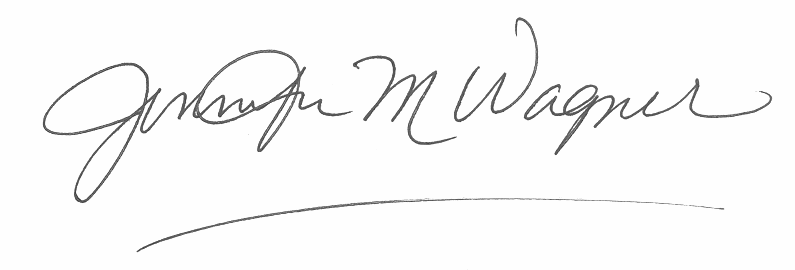 Jennifer M Wagner